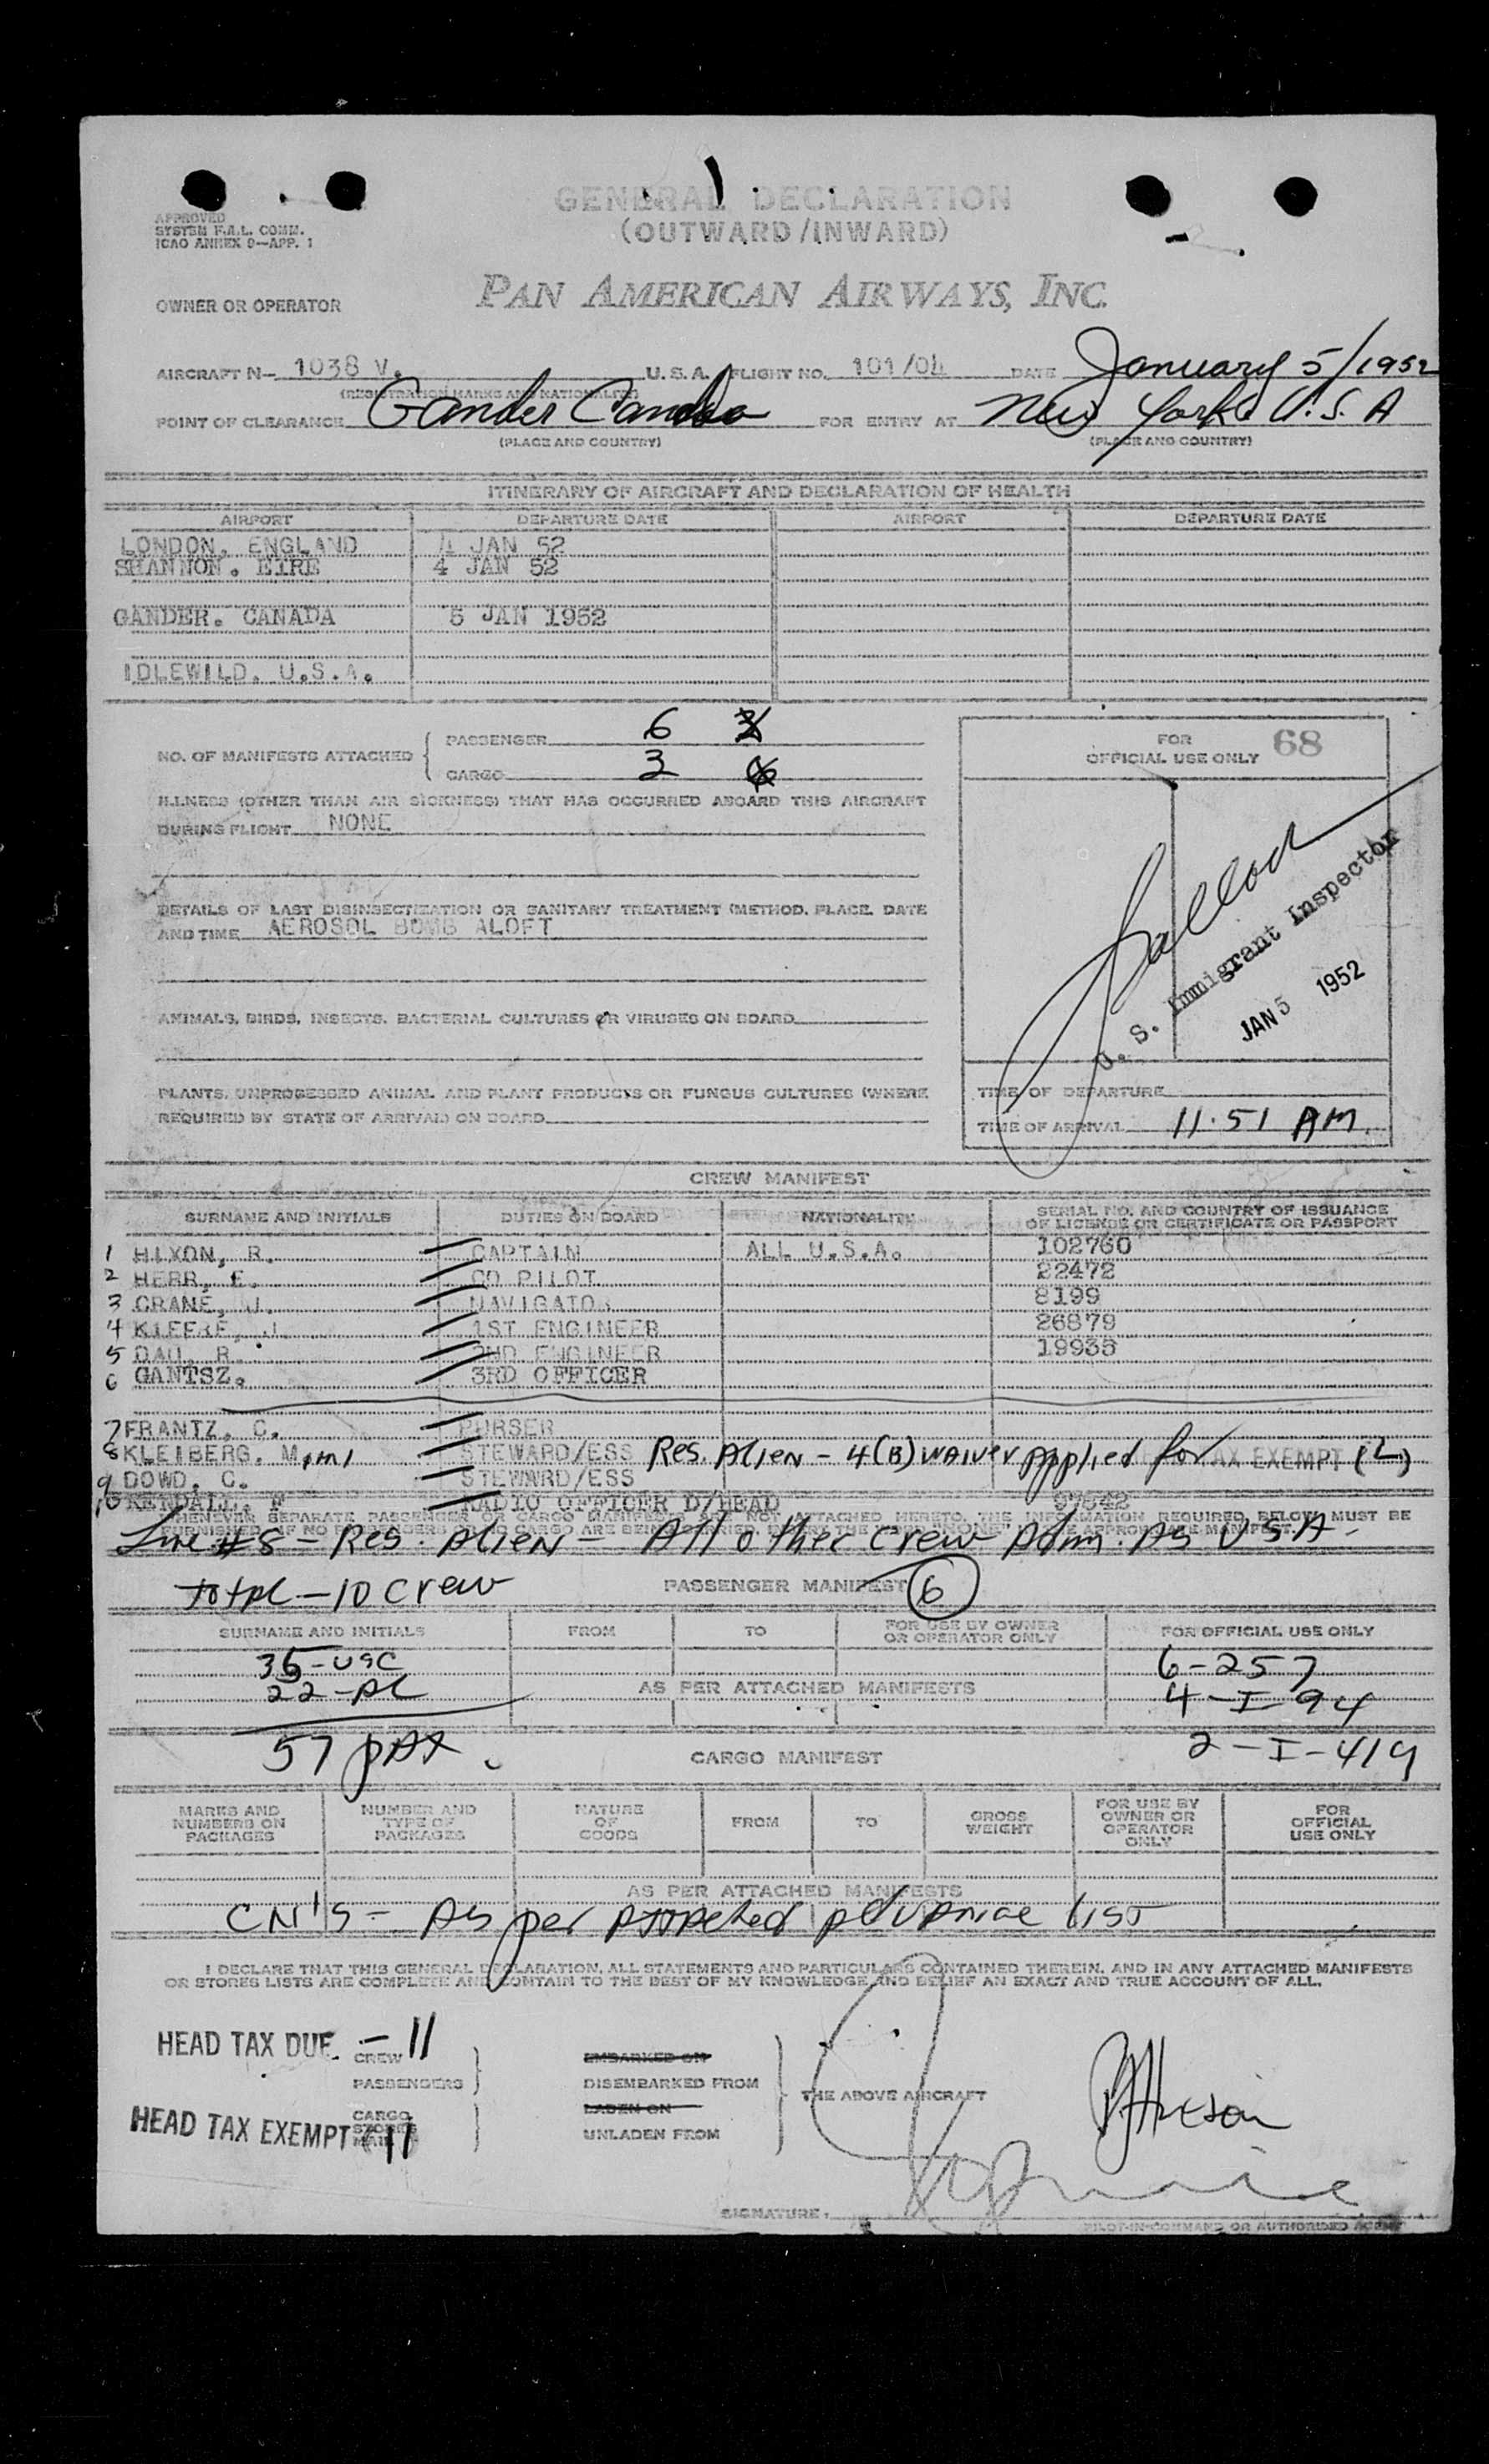 GENERAL DECLARATION
(OUTWARD/INWARD)
APPROVED
SYSTEM F.A.L. COMM.
ICAO ANNEX 9—APP. 1
OWNER OR OPERATOR PAN AMERICAN AIRWAYS, INC.
AIRCRAFT N— 1038 V. U.S.A. FLIGHT NO. 101/04 DATE January 5/1952
(REGISTRATION MARKS AND NATIONALITY)
POINT OF CLEARANCE Gander Canada FOR ENTRY AT New York U.S.A
(PLACE AND COUNTRY) (PLACE AND COUNTRY)
ITINERARY OF AIRCRAFT AND DECLARATION OF HEALTH
AIRPORT DEPARTURE DATE AIRPORT DEPARTURE DATE
LONDON. ENGLAND 4 JAN 52
SHANNON. EIRE 4 JAN 52
GANDER. CANADA 5 JAN 1952
IDLEWILD. U.S.A.
NO. OF MANIFESTS ATTACHED
PASSENGER 6
CARGO 3
FOR
OFFICIAL USE ONLY 68
ILLNESS (OTHER THAN AIR SICKNESS) THAT HAS OCCURRED ABOARD THIS AIRCRAFT
DURING FLIGHT NONE
DETAILS OF LAST DISINSECTIZATION OR SANITARY TREATMENT (METHOD, PLACE, DATE
AND TIME AEROSOL BOMB ALOFT
U. S. Immigrant Inspector
JAN 5 1952
ANIMALS, BIRDS, INSECTS, BACTERIAL CULTURES OR VIRUSES ON BOARD
PLANTS, UNPROCESSED ANIMAL AND PLANT PRODUCTS OR FUNGUS CULTURES (WHERE
REQUIRED BY STATE OF ARRIVAL) ON BOARD
TIME OF DEPARTURE
TIME OF ARRIVAL 11.51 AM.
CREW MANIFEST
SURNAME AND INITIALS DUTIES ON BOARD NATIONALITY SERIAL NO. AND COUNTRY OF ISSUANCE
OF LICENSE OR CERTIFICATE OR PASSPORT
1 HIXON, R. CAPTAIN ALL U.S.A. 102760
2 HERR, E. CO PILOT 22472
3 CRANE, J. NAVIGATOR 8199
4 J. 1ST ENGINEER 26879
5 R. 2ND ENGINEER 19935
6 GANTSZ. 3RD OFFICER
7 FRANTZ. C. PURSER
8 KLEIBERG. Mimi STEWARD/ESS Res. Alien - 4(B) waiver applied for TAX EXEMPT (L)
9 DOWD. C. STEWARD/ESS
10 KENDALL. F RADIO OFFICER D/HEAD 97842
WHENEVER SEPARATE PASSENGER OR CARGO MANIFESTS ARE NOT ATTACHED HERETO, THE INFORMATION REQUIRED BELOW MUST BE
Line #8 - Res. Alien - All other crew Adm. As U S A -
total - 10 crew PASSENGER MANIFEST 6
SURNAME AND INITIALS FROM TO FOR USE BY OWNER
OR OPERATOR ONLY FOR OFFICIAL USE ONLY
35 - USC 6-257
22 - AL AS PER ATTACHED MANIFESTS 4-I-94
57 pax. CARGO MANIFEST 2-I-419
MARKS AND
NUMBERS ON
PACKAGES
NUMBER AND
TYPE OF
PACKAGES
NATURE
OF
GOODS
FROM
TO
GROSS
WEIGHT
FOR USE BY
OWNER OR
OPERATOR
ONLY
FOR
OFFICIAL
USE ONLY
AS PER ATTACHED MANIFESTS
CN'S - As per attached advance list
I DECLARE THAT THIS GENERAL DECLARATION, ALL STATEMENTS AND PARTICULARS CONTAINED THEREIN, AND IN ANY ATTACHED MANIFESTS
OR STORES LISTS ARE COMPLETE AND CONTAIN TO THE BEST OF MY KNOWLEDGE AND BELIEF AN EXACT AND TRUE ACCOUNT OF ALL.
HEAD TAX DUE - 11
CREW
PASSENGERS
HEAD TAX EXEMPT
CARGO
STORES
MAIL
EMBARKED ON
DISEMBARKED FROM
LADEN ON
UNLADEN FROM
THE ABOVE AIRCRAFT
SIGNATURE:
PILOT-IN-COMMAND OR AUTHORISED AGENT